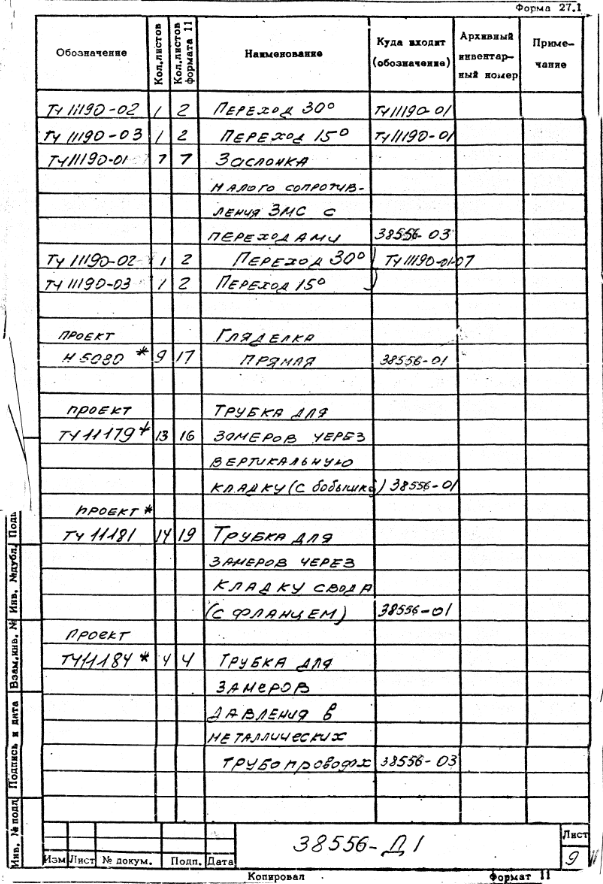 Форма 27.1
Обозначение Кол.листов Кол.листов формата 11 Наименование Куда входит (обозначение) Архивный инвентарный номер Примечание
ТЧ 11190-02 1 2 Переход 30° ТЧ 11190-01
ТЧ 11190-03 1 2 Переход 15° ТЧ 11190-01
ТЧ 11190-01 7 7 Заслонка
малого сопротив-
ления ЗМС с
переходами 38556-03
ТЧ 11190-02 1 2 Переход 30° ТЧ 11190-01-07
ТЧ 11190-03 1 2 Переход 15°
проект Гляделка
Н 5080 * 9 17 прямая 38556-01
проект Трубка для
ТЧ 11179 * 13 16 замеров через
вертикальную
кладку (с бобышкой) 38556-01
проект *
ТЧ 11181 14 19 Трубка для
замеров через
кладку свода
(с фланцем) 38556-01
проект
ТЧ 11184 * 4 4 Трубка для
замеров
давления в
металлических
трубопроводах 38556-03
Инв. № подл. Подпись и дата Взам.инв. № Инв. №дубл. Подп
Изм Лист № докум. Подп. Дата
38556-Д1
Лист
9
Копировал Формат 11